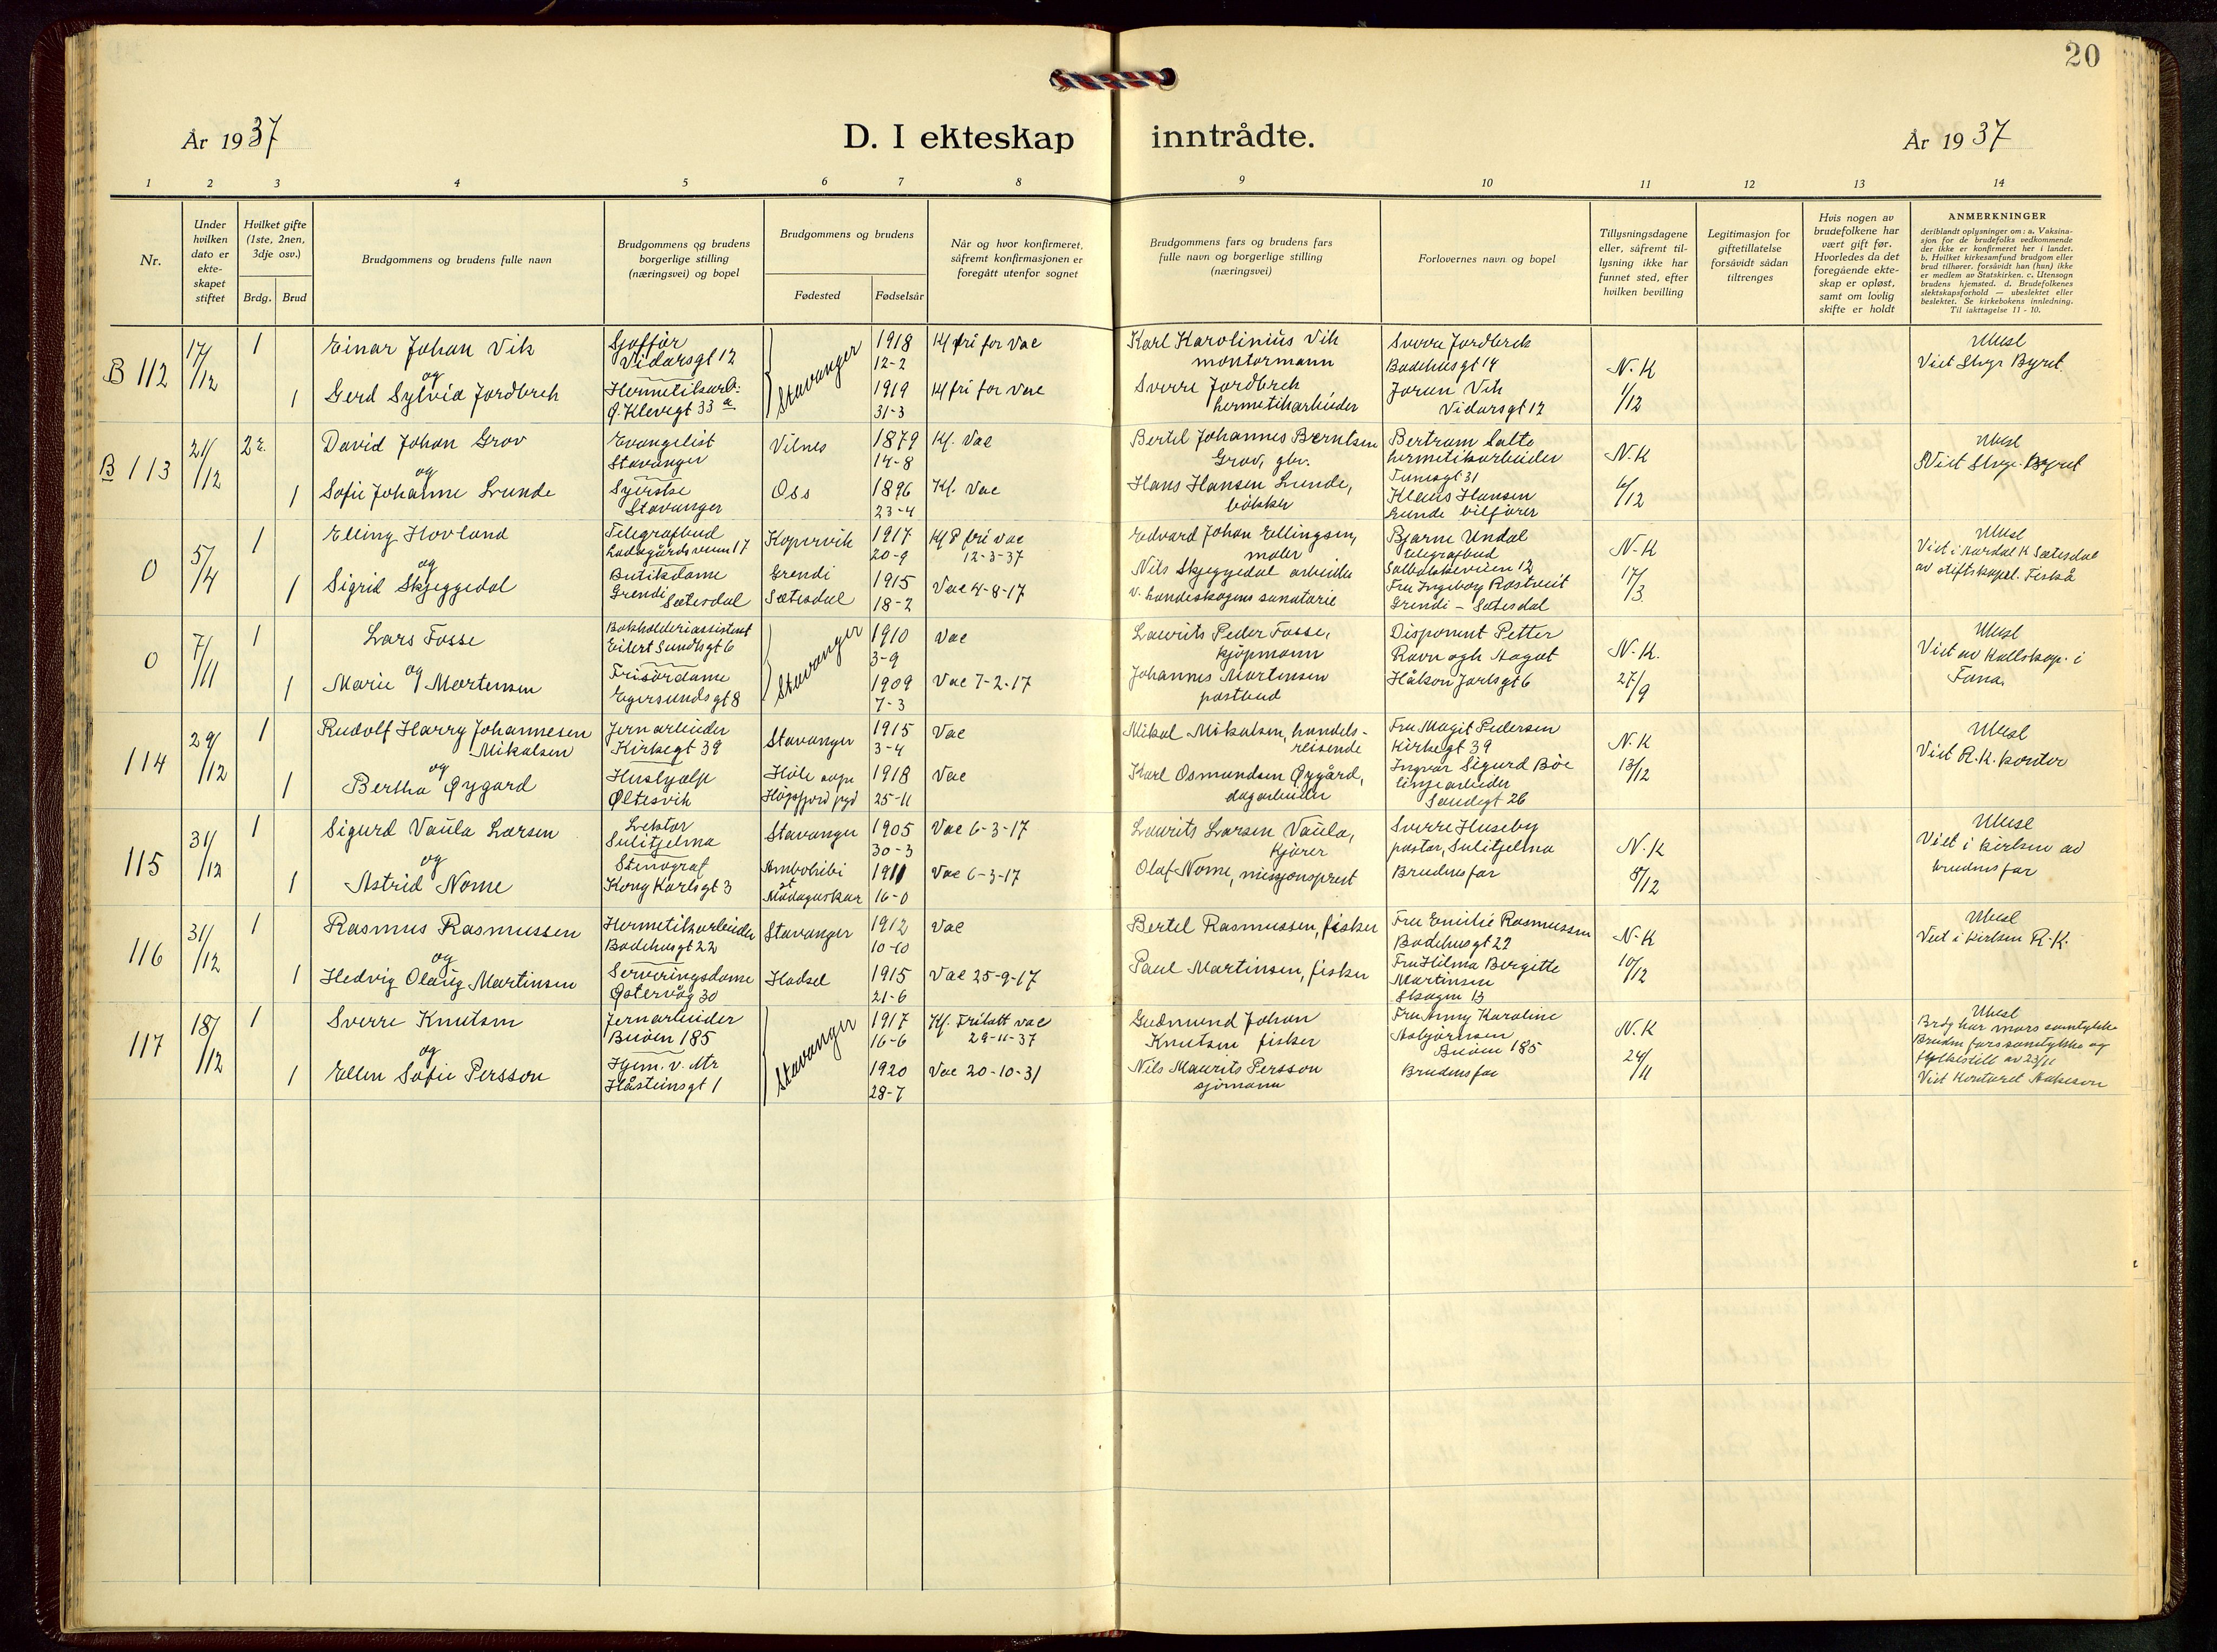 20
År 1937
D. I ekteskap inntrådte.
År 1937
1 2 3 4 5 6 7 8 9 10 11 12 13 14
Nr.
Under hvilken dato er ekte-skapet stiftet
Hvilket gifte (1ste, 2nen, 3dje osv.)
Brdg. Brud
Brudgommens og brudens fulle navn
Brudgommens og brudens borgerlige stilling (næringsvei) og bopel
Brudgommens og brudens
Fødested Fødselsår
Når og hvor konfirmeret, såfremt konfirmasjonen er foregått utenfor sognet
Brudgommens fars og brudens fars fulle navn og borgerlige stilling (næringsvei)
Forlovernes navn og bopel
Tillysningsdagene eller, såfremt til-lysning ikke har funnet sted, efter hvilken bevilling
Legitimasjon for giftetillatelse forsåvidt sådan tiltrenges
Hvis nogen av brudefolkene har vært gift før. Hvorledes da det foregående ekte-skap er opløst, samt om lovlig skifte er holdt
ANMERKNINGER
deriblandt oplysninger om: a. Vaksina-sjon for de brudefolks vedkommende der ikke er konfirmeret her i landet. b. Hvilket kirkesamfund brudgom eller brud tilhører, forsåvidt han (hun) ikke er medlem av Statskirken. c. Utensogn brudens hjemsted. d. Brudefolkenes slektskapsforhold — ubeslektet eller beslektet. Se kirkebokens innledning. Til iakttagelse 11 - 10.
B 112 17/12 1 Einar Johan Vik Sjofför Vidarsgt 12 Stavanger 1918 12-2 Kf fri for Vac Karl Karolinius Vik montørmann Sverre Jordbrek Badehusgt 14 N.K 1/12 Ubesl Viet Stvgr Byret.
og
1 Gerd Sylvia Jordbrek Hermetikarb: Q. Klevegt 33 a 1919 31-3 Kf fri for Vac Sverre Jordbrek hermetikarbeider Jorun Vik Vidarsgt 12
B 113 21/12 2. David Johan Grov Evangelist Stavanger Vilnes 1879 14-8 Kf. Vac Bertel Johannes Berntsen Grov, gbr. Bertram Salte hermetikarbeider Tunsgt 31 N.K 6/12 Ubesl Viet Stvgr. Byret
og
1 Sofie Johanne Lunde Syerske Stavanger Oss 1896 23-4 Kf. Vac Hans Hansen Lunde, bøkker Klaus Hansen Lunde bilfører
0 5/4 1 Elling Hovland Telegrafbud Ladegårdsveien 17 Kopervik 1917 20-9 Kf P fri vac 12-3-37 Edvard Johan Ellingsen, maler Bjarne Undal telegrafbud Solbakkeveien 12 N-K 17/3 Ubesl Viet i Aardal K Sætesdal av stiftskapel. Fiskå
og
1 Sigrid Skjeggedal Butikdame Grendi Sætesdal Grendi Sætesdal 1915 18-2 Vac 4-8-17 Nils Skjeggedal arbeider v. Landeskogens sanatorie Fru Ingeborg Rostveit Grendi - Sætesdal
0 7/11 1 Lars Fosse Bokholderiassistent Eilert Sundtsgt 6 Stavanger 1910 3-9 Vac Lauritz Peder Fosse, kjøpmann Disponent Petter Ravn ogh Aagot Håkon Jarlsgt 6 N-K. 27/9 Ubesl Viet av Kallskap. i Fana.
og
1 Marie Martensen Frisördame Egersundsgt 8 1909 7-3 Vac 7-2-17 Johannes Martensen postbud
114 29/12 1 Rudolf Harry Johannesen Mikalsen Jernarbeider Kirkegt 39 Stavanger 1915 3-4 Vac Mikal Mikalsen, handels-reisende Fru Magit Pedersen Kirkegt 39 N.K 13/12 Ubesl Viet R.K. kontor
og
1 Bertha Øygard Hushjælp Oltesvik Høle sogn Høgsfjord pgd 1918 25-11 Vac Karl Osmundsen Øygård, dagarbeider Ingvar Sigurd Böe linjearbeider Sandegt 26
115 31/12 1 Sigurd Vaula Larsen Lektor Sulitjelma Stavanger 1905 30-3 Vac 6-3-17 Laurits Larsen Vaula, kjører Sverre Huseby pastor, Sulitjelma N.K 8/12 Ubesl Viet i kirken av brudens far
og
1 Astrid Nome Stenograf Kong Karlsgt 3 Ambohibi Madagaskar 1911 Vac 6-3-17 Olaf Nome, misjonsprest Brudens far
116 31/12 1 Rasmus Rasmussen Hermetikarbeider Badehusgt 22 Stavanger 1912 10-10 Vac Bertel Rasmussen, fisker Fru Emilie Rasmussen Badehusgt 22 N-K 10/12 Ubesl Viet i kirken R-K.
og
1 Hedvig Olaug Martinsen Serveringsdame Østervåg 30 Hadsel 1915 21-6 Vac 25-9-17 Paul Martinsen, fisker Fru Hilma Bergitte Martinsen Skagen 13
117 18/12 1 Sverre Knutsen Jernarbeider Buöen 185 Stavanger 1917 16-6 Kf. Fritatt vac 29-11-37 Gudmund Johan Knutsen fisker Fru Anny Karoline Asbjörnsen Buöen 185 N.K 24/11 Ubesl Brdg har mors samtykke Bruden fars samtykke og fylkestill av 23/11 Viet Kontoret Aakeson
og
1 Ellen Sofie Persson Hjem. v. Mr Håsteinsgt 1 1920 28-7 Vac 20-10-31 Nils Maurits Persson sjömann Brudens far